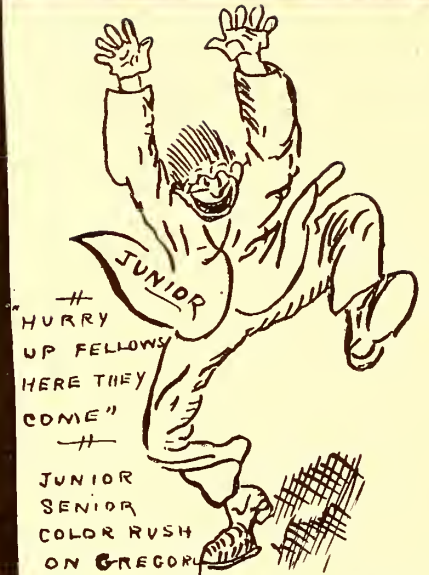 JUNIOR
"HURRY
UP FELLOWS
HERE THEY
COME"
JUNIOR
SENIOR
COLOR RUSH
ON GREGORY